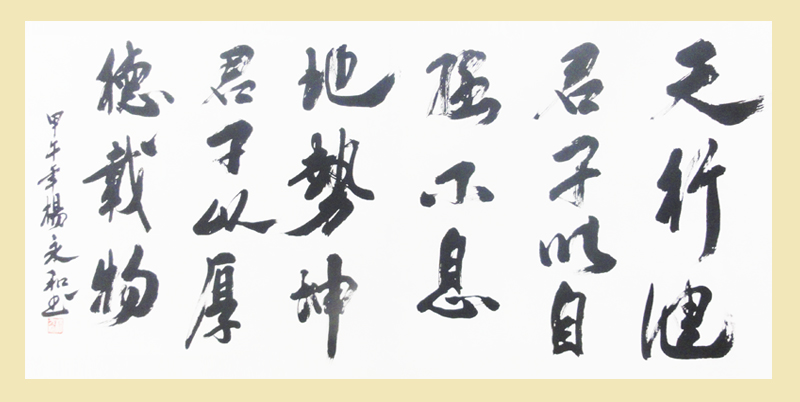 天行健
君子以自
强不息
地勢坤
君子以厚
德載物
甲午年楊永和书